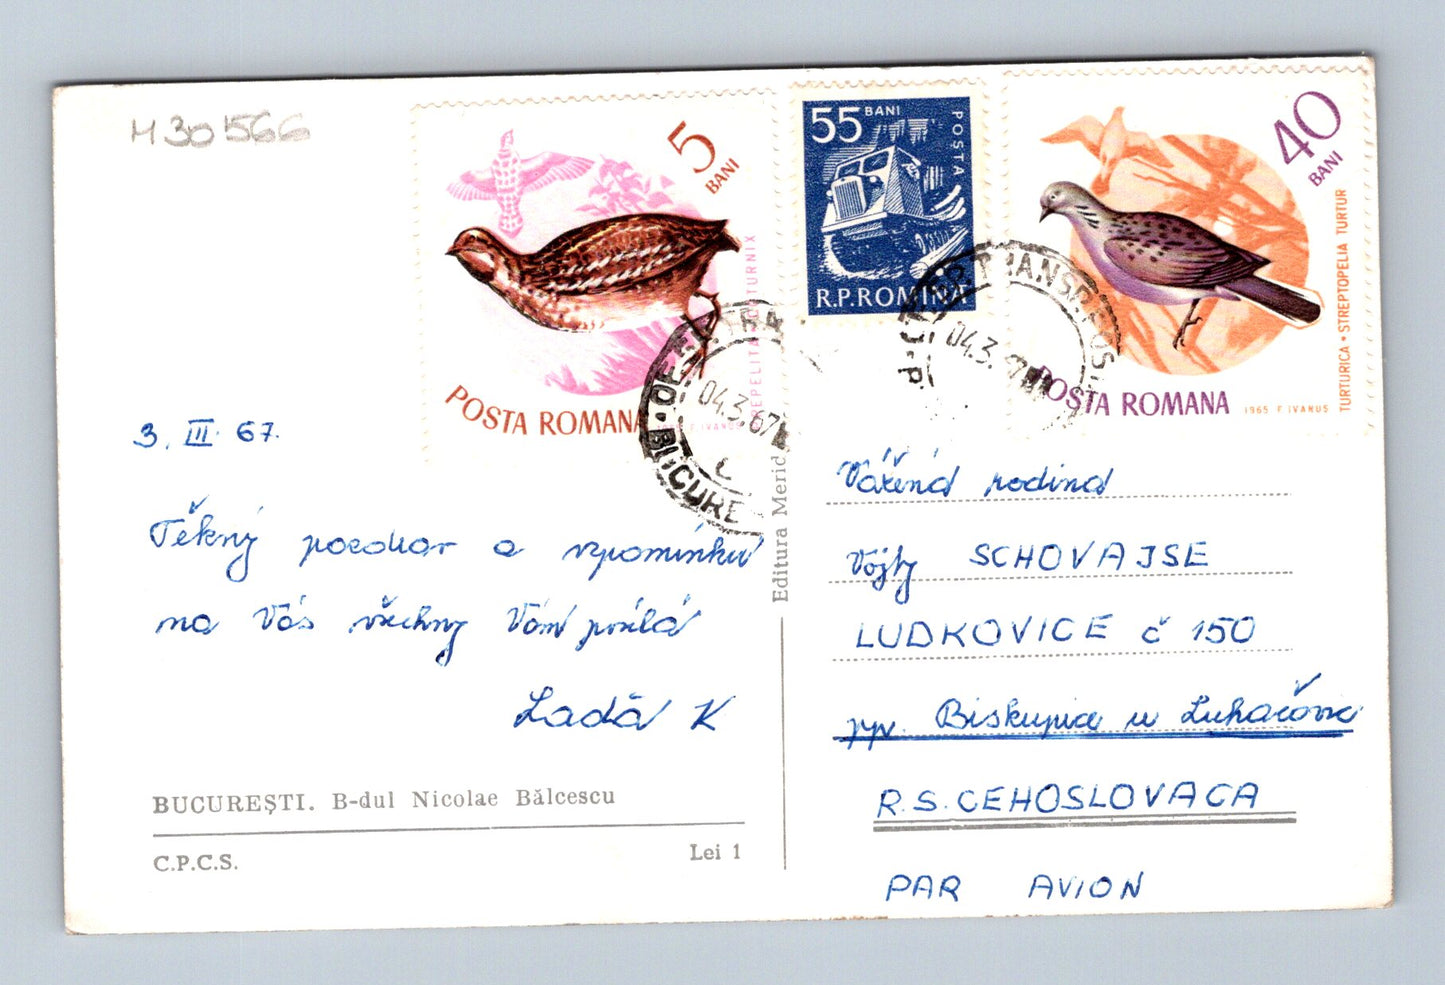 M30566
5 BANI
PREPELITA COTURNIX
POSTA ROMANA
F. IVANUS
55 BANI
POSTA
R.P.ROMINA
40 BANI
TURTURICA • STREPTOPELIA TURTUR
POSTA ROMANA
1965 F. IVANUS
04.3.67
BUCURE
TRANSP.
04.3.67
3. III. 67.
Těkný pozdrav a vzpomínku
na Vás všechny Vám posílá
Ladă K
BUCUREȘTI. B-dul Nicolae Bălcescu
C.P.C.S.
Lei 1
Editura Merid
Vážená rodina
Vojty SCHOVAJSE
LUDKOVICE č 150
pp. Biskupice u Luhačovic
R.S. CEHOSLOVACA
PAR AVION